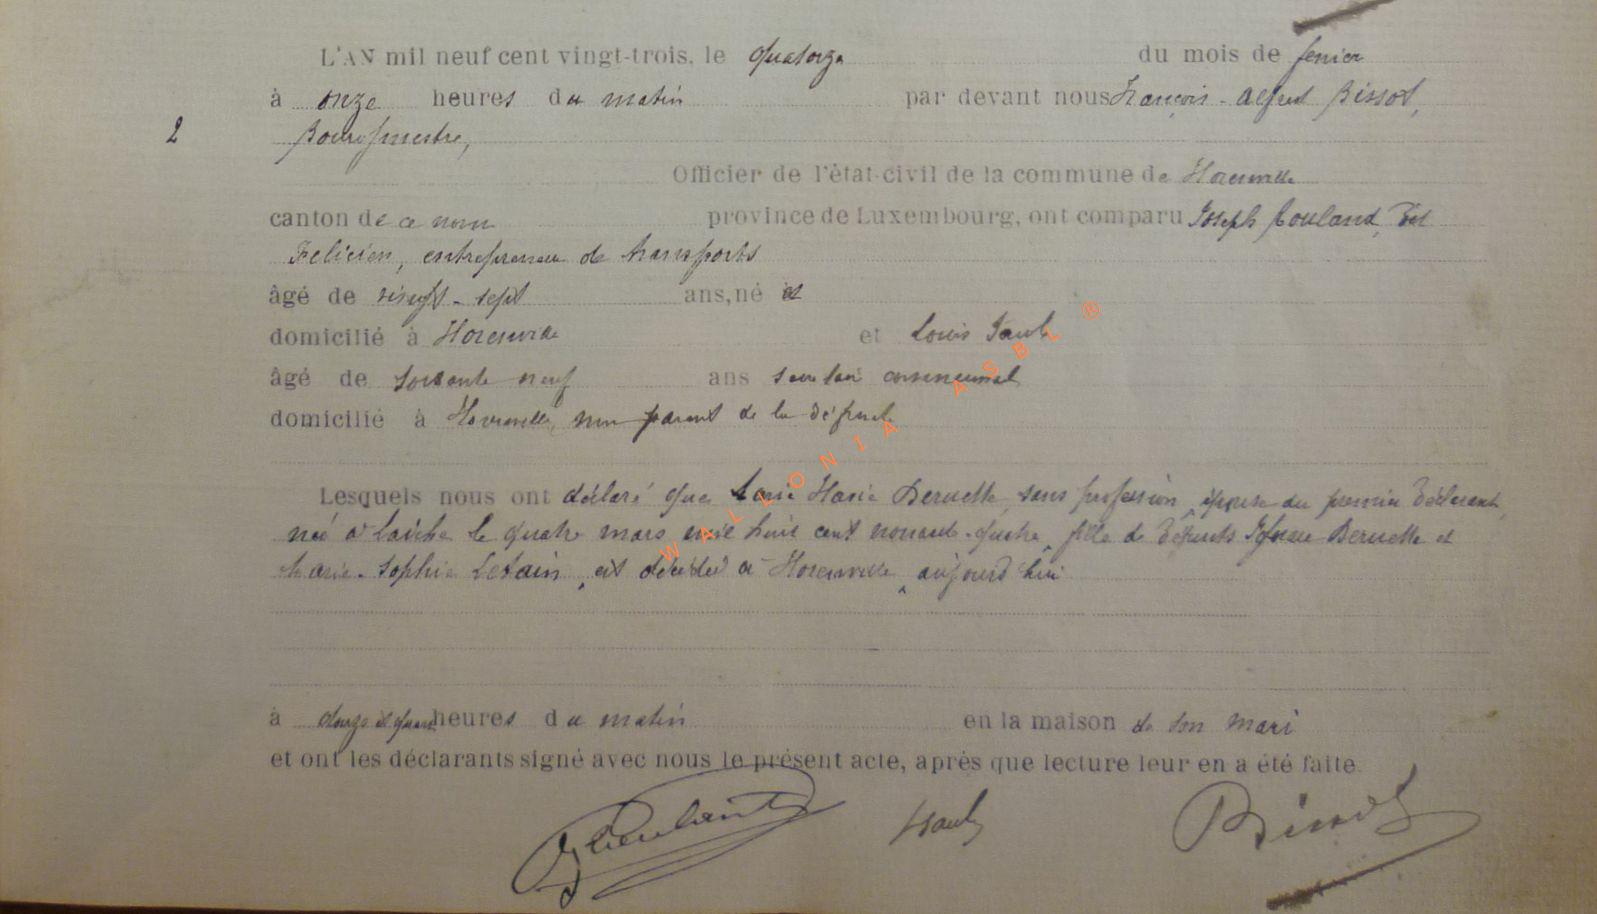 L'AN mil neuf cent vingt-trois, le quatorze du mois de fevrier
à onze heures du matin par devant nous François-Alfred Bissot,
2 Bourgmestre,
Officier de l'état-civil de la commune de Florenville
canton de ce nom province de Luxembourg, ont comparu Joseph dit
Felicien, entrepreneur de transports
âgé de vingt-sept ans, né et
domicilié à Florenville et Louis
âgé de soixante neuf ans secrétaire communal
domicilié à Florenville, non parent de la défunte
Lesquels nous ont déclaré que Marie Deruette, sans profession, épouse du premier déclarant,
née à Laiche le quatre mars mil huit cent nonante-quatre, fille de défunts Deruette et
Marie-Sophie est décédée à Florenville, aujourd'hui
à onze et quart heures du matin en la maison de son mari
et ont les déclarants signé avec nous le présent acte, après que lecture leur en a été faite.
Bissot
WALLONIA ASBL ®